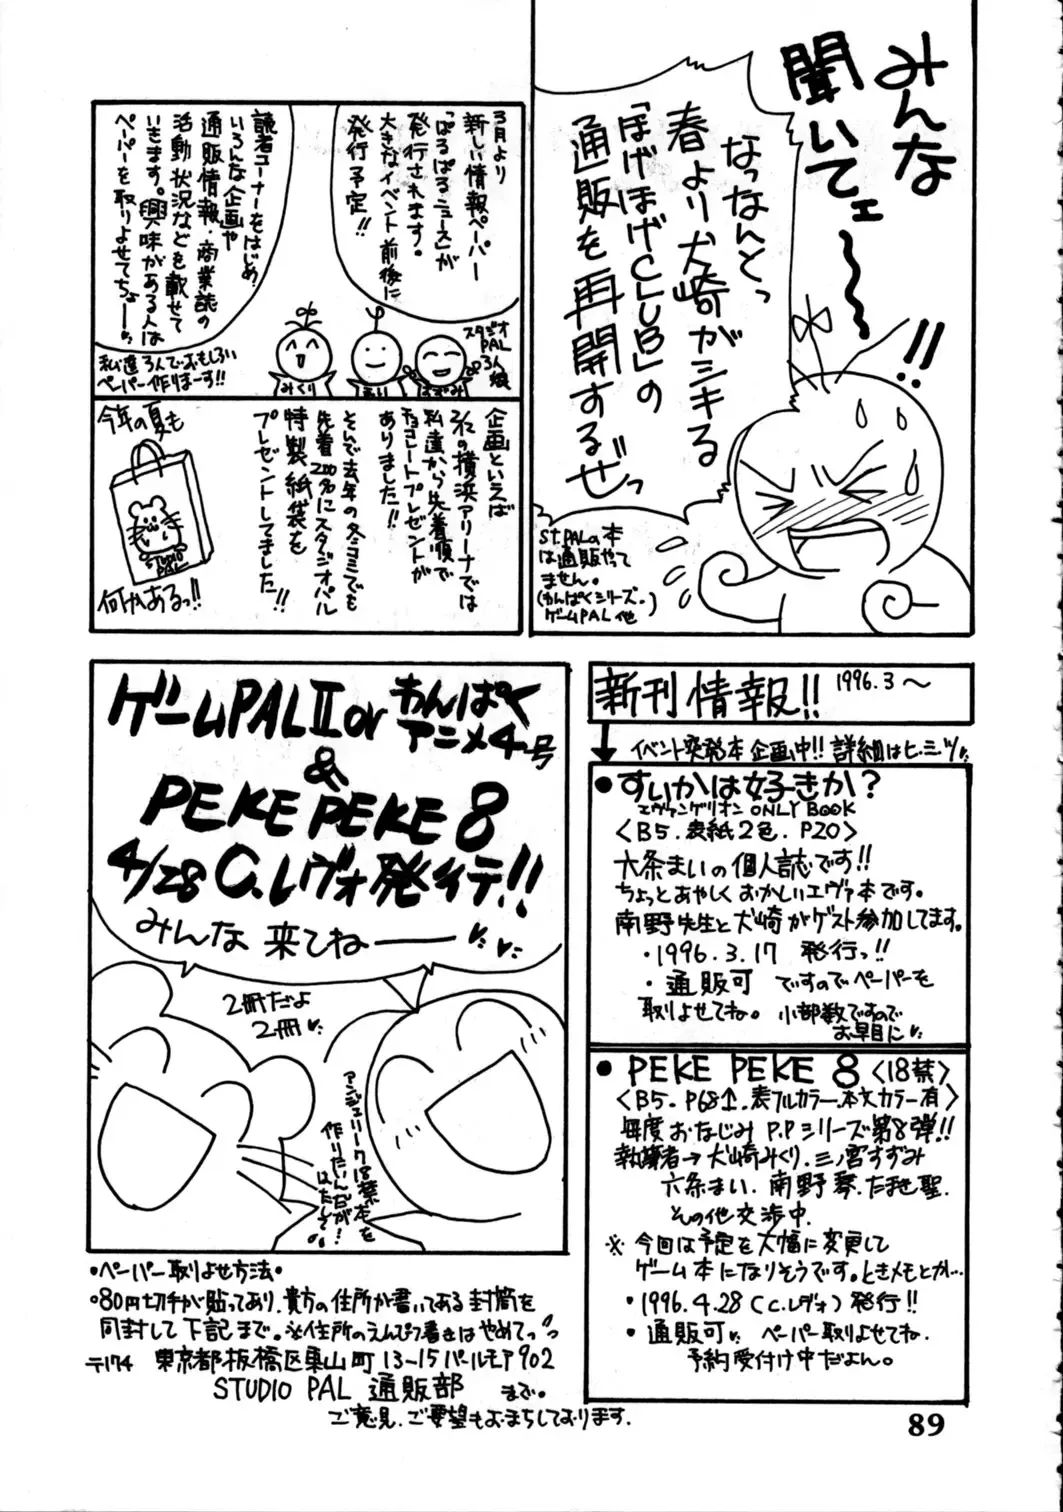 みんな
聞いてェ〜〜!!
なっなんとっ
春より犬崎がシキる
「ほげほげCLUB」の
通販を再開するぜっ
St.PALの本
は通販やって
ません。
(わんぱくシリーズ。
ゲームPAL他)
3月より
新しい情報ペーパー
「ぱるぱるニュース」が
発行されます。
大きなイベント前後に
発行予定!!
読者コーナーをはじめ、
いろんな企画や
通販情報・商業誌の
活動状況などを載せて
いきます。興味がある人は
ペーパーを取りよせてちょーー
スタジオ
PAL
3人娘
みくり
私達3人でおもしろい
ペーパー作りまーす!!
企画といえば
3/2の横浜アリーナでは
私達から先着順で
チョコレートプレゼントが
ありました!!
そんで去年の冬コミでも
先着200名にスタジオパル
特製紙袋を
プレゼントしてました!!
今年の夏も
STUDIO
PAL
何かあるっ!!
ゲームPALⅡor わんぱく
アニメ4号
&
PEKE PEKE 8
4/28 C.レヴォ発行デ!!
みんな 来てねーーー
2冊だよ
2冊
アンジェリーク18禁本を
作りたいんだが!
はたして。
・ペーパー取りよせ方法・
・80円切手が貼ってあり、貴方の住所が書いてある封筒を
同封して下記まで。※住所のえんぴつ書きはやめてっっ
〒174 東京都板橋区東山町13-15パールモア902
STUDIO PAL 通販部 まで。
ご意見、ご要望もおまちしております。
新刊情報!! 1996.3〜
イベント突発本 企画中!! 詳細はヒ・ミツ
・すいかは好きか?
エヴァンゲリオン ONLY BOOK
〈B5.表紙2色.P20〉
六条まいの個人誌です!!
ちょっとあやしくおかしいエヴァ本です。
南野先生と犬崎がゲスト参加してます。
・1996.3.17 発行っ!!
・通販可 ですのでペーパーを
取りよせてね。小部数ですので
お早目に
・PEKE PEKE 8〈18禁〉
〈B5.P68↑.表フルカラー.本文カラー有〉
毎度おなじみP.Pシリーズ第8弾!!
執筆者→犬崎みくり.三ノ宮すずみ
六条まい.南野琴.たませ聖.
その他交渉中.
※今回は予定を大幅に変更して
ゲーム本になりそうです。ときメモとか…
・1996.4.28(C.レヴォ)発行!!
・通販可 ペーパー取りよせてね.
予約受付け中だよん。
89